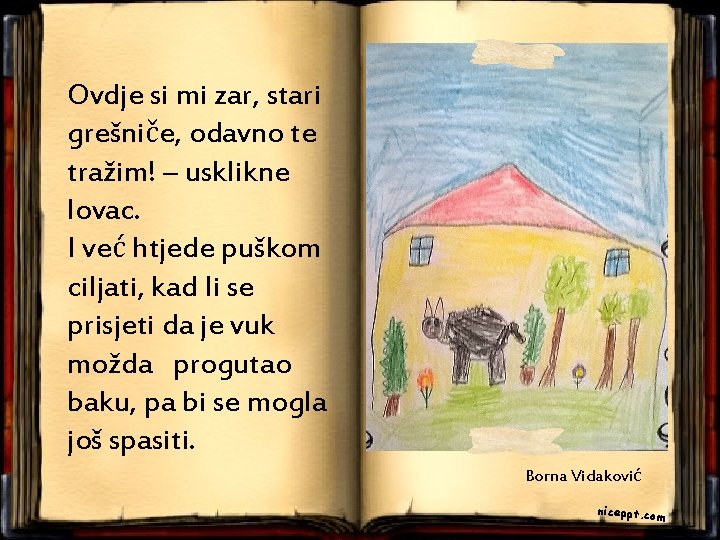 Ovdje si mi zar, stari
grešniče, odavno te
tražim! – usklikne
lovac.
I već htjede puškom
ciljati, kad li se
prisjeti da je vuk
možda progutao
baku, pa bi se mogla
još spasiti.
Borna Vidaković
niceppt.com